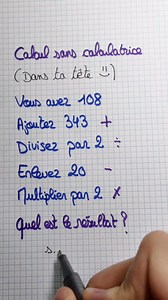 Calcul sans calculatrice
(Dans ta tête ☺)
Vous avez 108
Ajoutez 343 +
Divisez par 2 ÷
Enlevez 20 -
Multiplier par 2 ×
Quel est le résultat ?